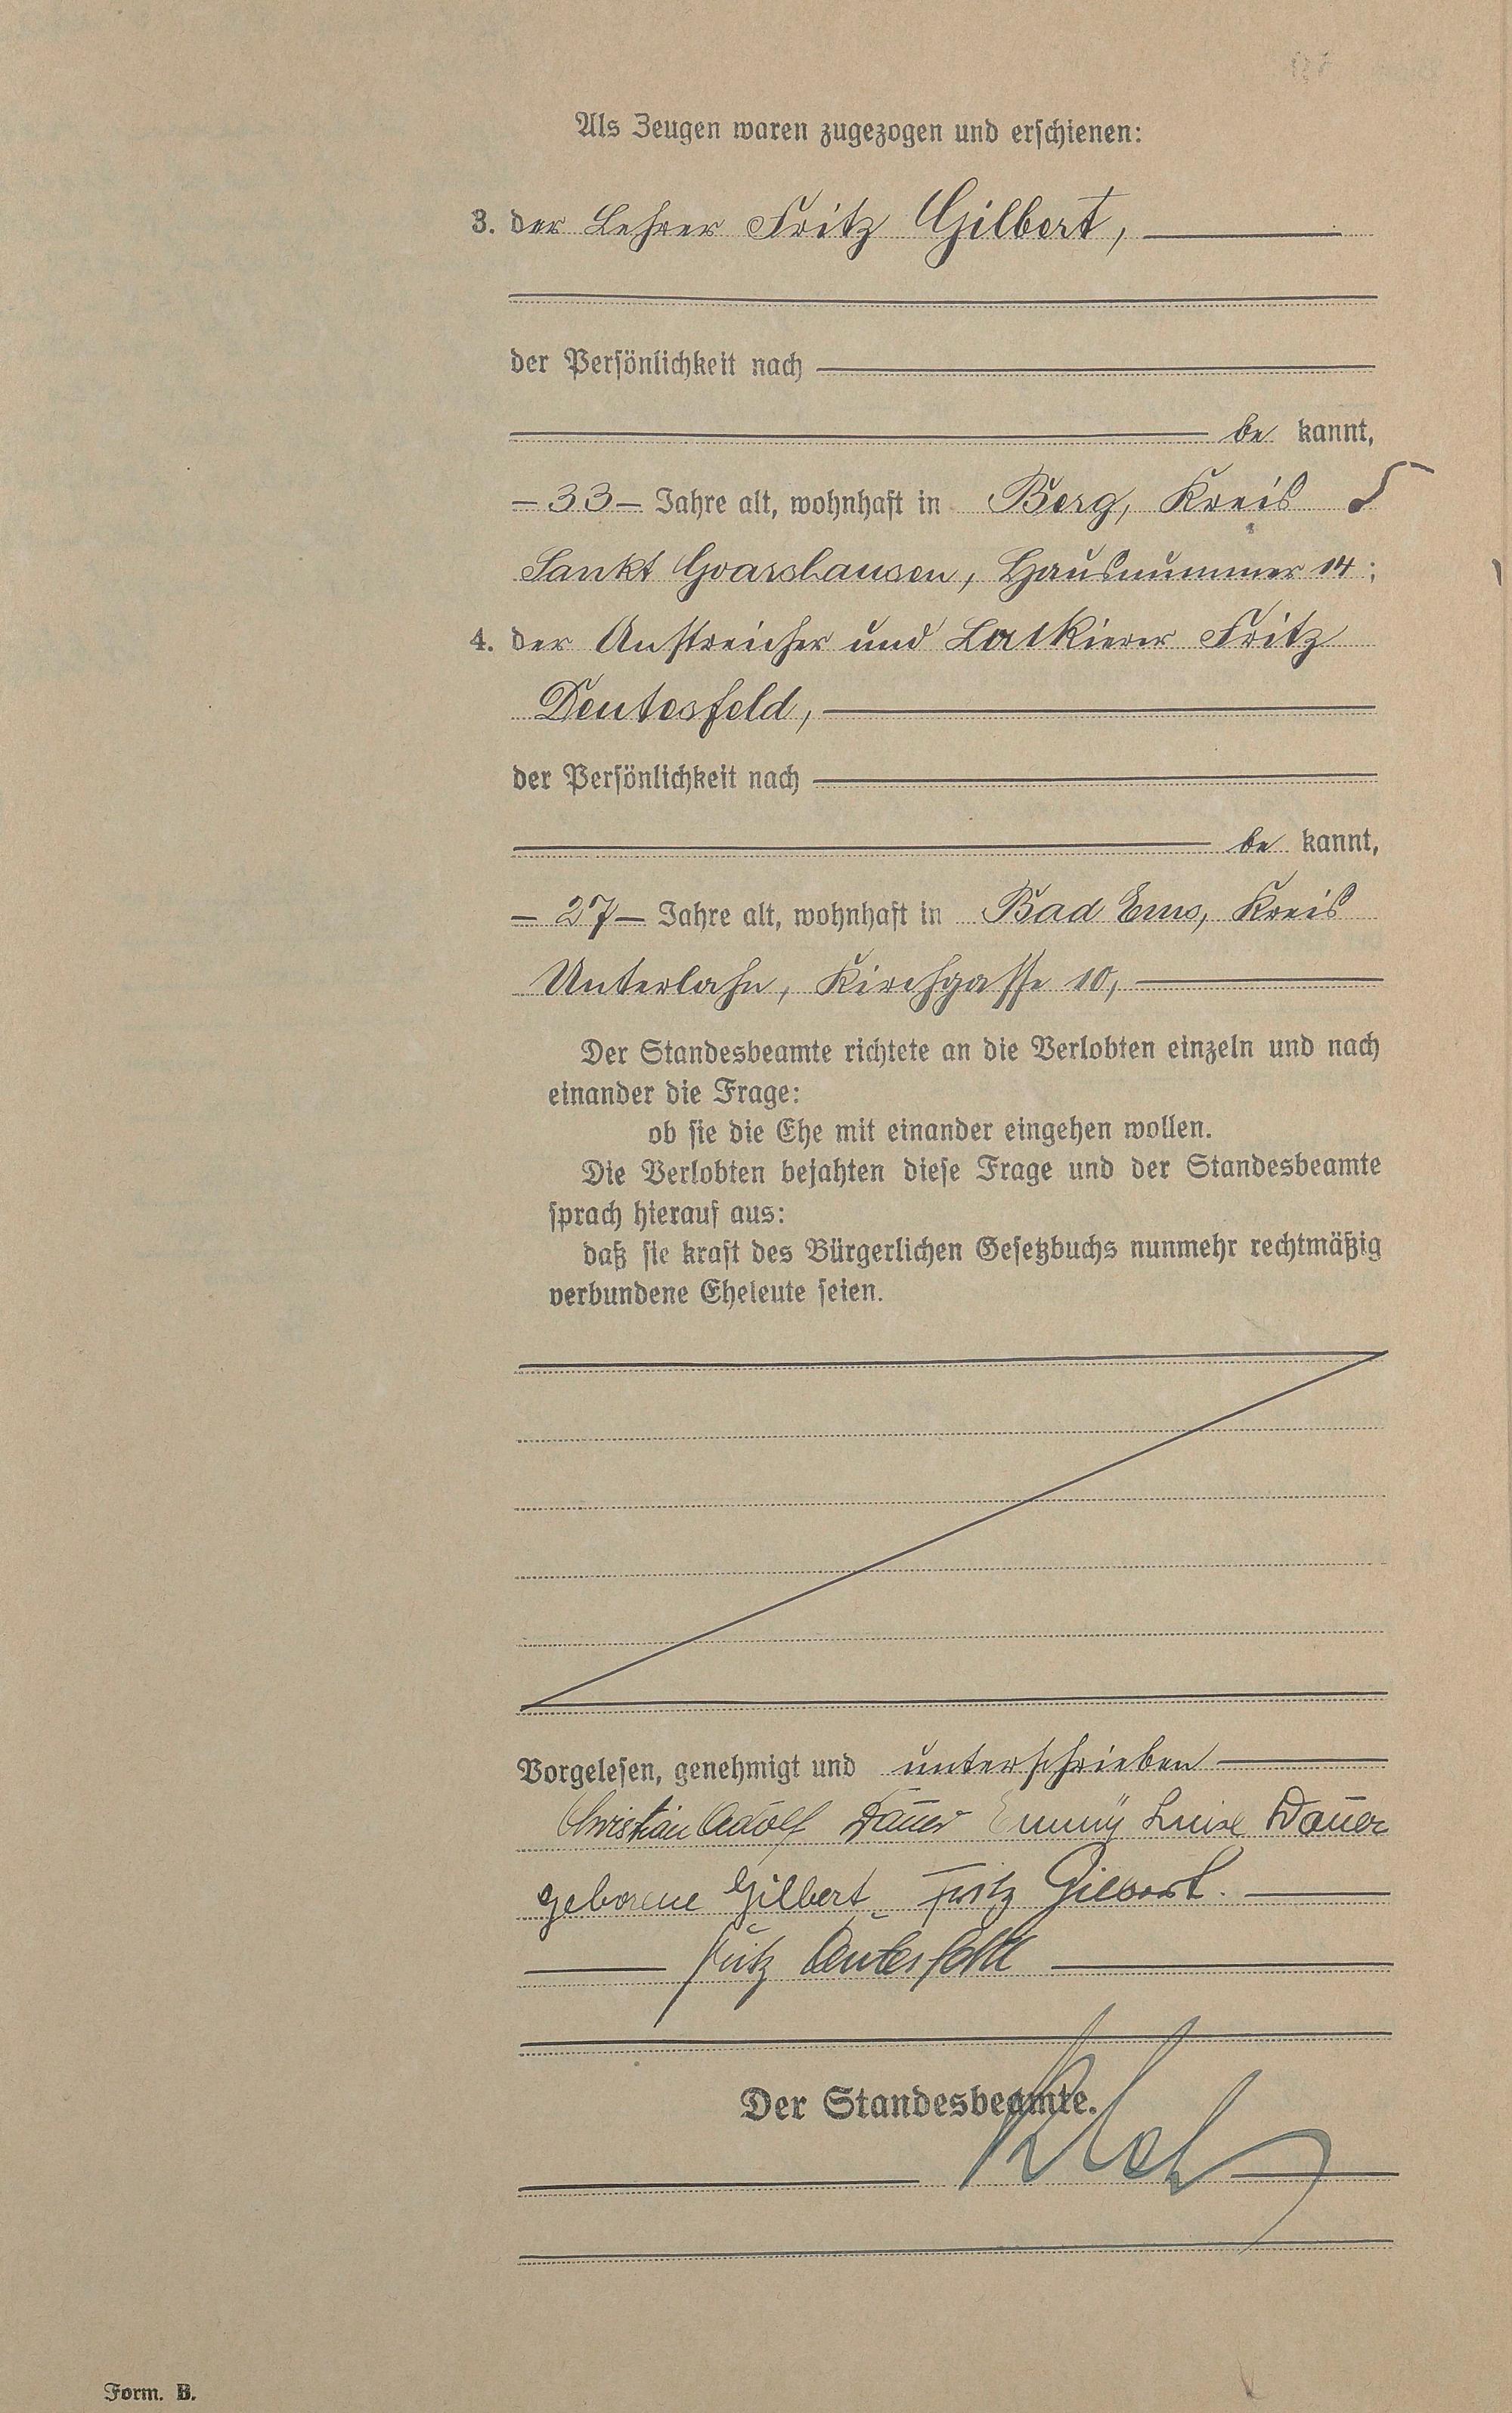 Als Zeugen waren zugezogen und erschienen:
3. der Lehrer Fritz Gilbert,
der Persönlichkeit nach
be kannt,
– 33 – Jahre alt, wohnhaft in Berg, Kreis
Sankt Goarshausen, Hausnummer 14;
4. der Anstreicher und Lackierer Fritz
Deutesfeld,
der Persönlichkeit nach
be kannt,
– 27 – Jahre alt, wohnhaft in Bad Ems, Kreis
Unterlahn, Kirchgasse 10,
Der Standesbeamte richtete an die Verlobten einzeln und nach
einander die Frage:
ob sie die Ehe mit einander eingehen wollen.
Die Verlobten bejahten diese Frage und der Standesbeamte
sprach hierauf aus:
daß sie kraft des Bürgerlichen Gesetzbuchs nunmehr rechtmäßig
verbundene Eheleute seien.
Vorgelesen, genehmigt und unterschrieben
Christian Adolf Dauer Emmy Luise Dauer
geborene Gilbert Fritz Gilbert.
Fritz Deutesfeld
Der Standesbeamte.
Form. B.